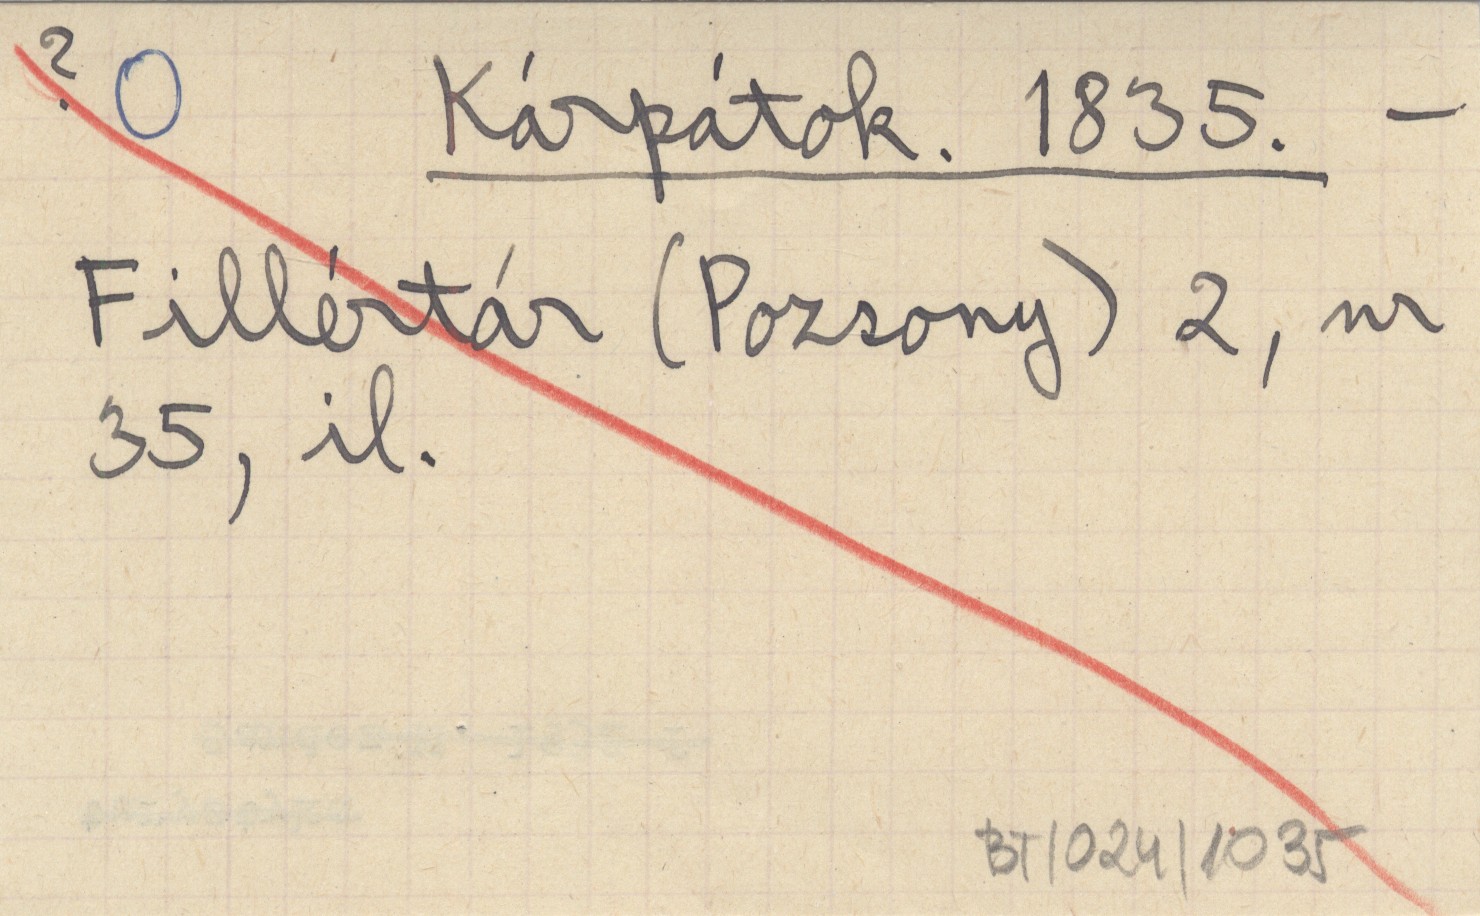 ? O Kárpátok. 1835. —
Fillértár (Pozsony) 2, nr
35, il.
BT/024/1035